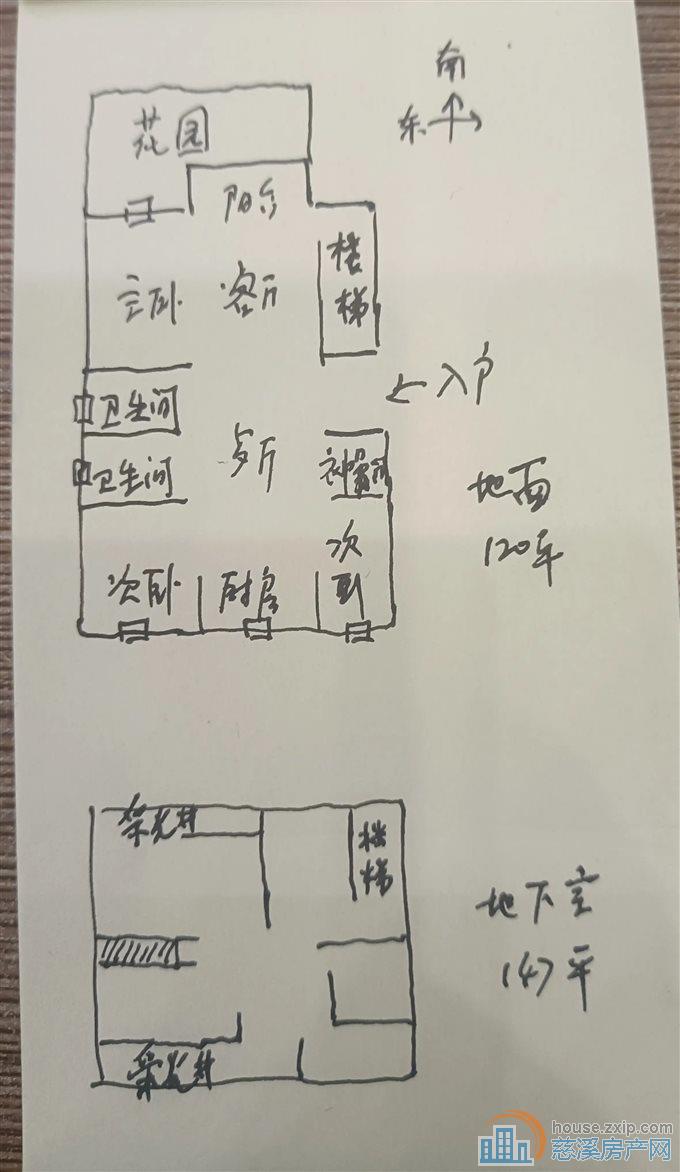 南
东
花园
阳台
楼
梯
主卧
客厅
入户
卫生间
卫生间
地面
120平
次卧
厨房
次
卧
采光井
楼
梯
地下室
147平
采光井
house.zxip.com
慈溪房产网